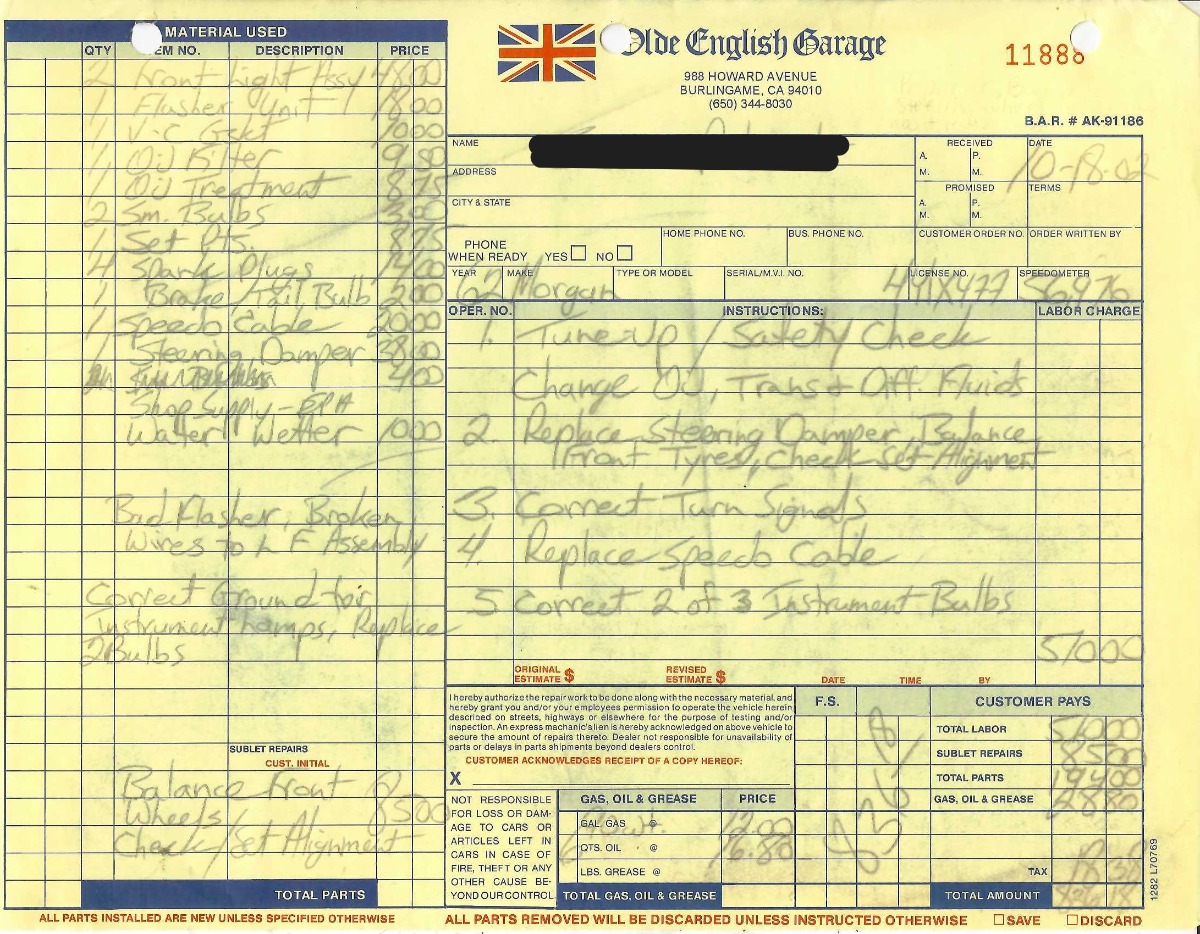 MATERIAL USED
QTY EM NO. DESCRIPTION PRICE
2 Front Light Assy 48.00
1 Flasher Unit 18.00
1 V-C Gskt 10.00
1 Oil Filter 9.80
1 Oil Treatment 8.75
2 Sm. Bulbs 3.00
1 Set Pts. 8.75
4 Spark Plugs 14.00
1 Brake/Tail Bulb 2.00
1 Speedo Cable 20.00
1 Steering Damper 38.00
4.00
Shop Supply - EPA
Water Wetter 10.00
Bad Flasher, Broken
Wires to L F Assembly
Correct Ground for
Instrument Lamps, Replace
2 Bulbs
SUBLET REPAIRS
CUST. INITIAL
Balance Front
Wheels/ 85.00
Check/Set Alignment
TOTAL PARTS
Olde English Garage
988 HOWARD AVENUE
BURLINGAME, CA 94010
(650) 344-8030
11888
B.A.R. # AK-91186
NAME
ADDRESS
CITY & STATE
RECEIVED
A. P.
M. M.
DATE
10-18-02
PROMISED
A. P.
M. M.
TERMS
PHONE
WHEN READY YES NO
HOME PHONE NO. BUS. PHONE NO. CUSTOMER ORDER NO. ORDER WRITTEN BY
YEAR MAKE TYPE OR MODEL SERIAL/M.V.I. NO. LICENSE NO. SPEEDOMETER
62 Morgan 441X477 56976
OPER. NO. INSTRUCTIONS: LABOR CHARGE
1. Tune-Up / Safety Check
Change Oil, Trans + Diff. Fluids
2. Replace Steering Damper, Balance
Front Tyres, Check Set Alignment
3. Correct Turn Signals
4. Replace Speedo Cable
5 Correct 2 of 3 Instrument Bulbs
510.00
ORIGINAL
ESTIMATE $
REVISED
ESTIMATE $
DATE TIME BY
I hereby authorize the repair work to be done along with the necessary material, and
hereby grant you and/or your employees permission to operate the vehicle herein
described on streets, highways or elsewhere for the purpose of testing and/or
inspection. An express mechanic's lien is hereby acknowledged on above vehicle to
secure the amount of repairs thereto. Dealer not responsible for unavailability of
parts or delays in parts shipments beyond dealers control.
CUSTOMER ACKNOWLEDGES RECEIPT OF A COPY HEREOF:
X
NOT RESPONSIBLE
FOR LOSS OR DAM-
AGE TO CARS OR
ARTICLES LEFT IN
CARS IN CASE OF
FIRE, THEFT OR ANY
OTHER CAUSE BE-
YOND OUR CONTROL.
GAS, OIL & GREASE PRICE
GAL. GAS @ 90wt. 12.00
6 QTS. OIL @ 16.80
LBS. GREASE @
TOTAL GAS, OIL & GREASE
F.S.
836.18
CUSTOMER PAYS
TOTAL LABOR 510.00
SUBLET REPAIRS 85.00
TOTAL PARTS 194.00
GAS, OIL & GREASE 28.80
TAX 18.38
TOTAL AMOUNT 836.18
1282 L70769
ALL PARTS INSTALLED ARE NEW UNLESS SPECIFIED OTHERWISE
ALL PARTS REMOVED WILL BE DISCARDED UNLESS INSTRUCTED OTHERWISE SAVE DISCARD